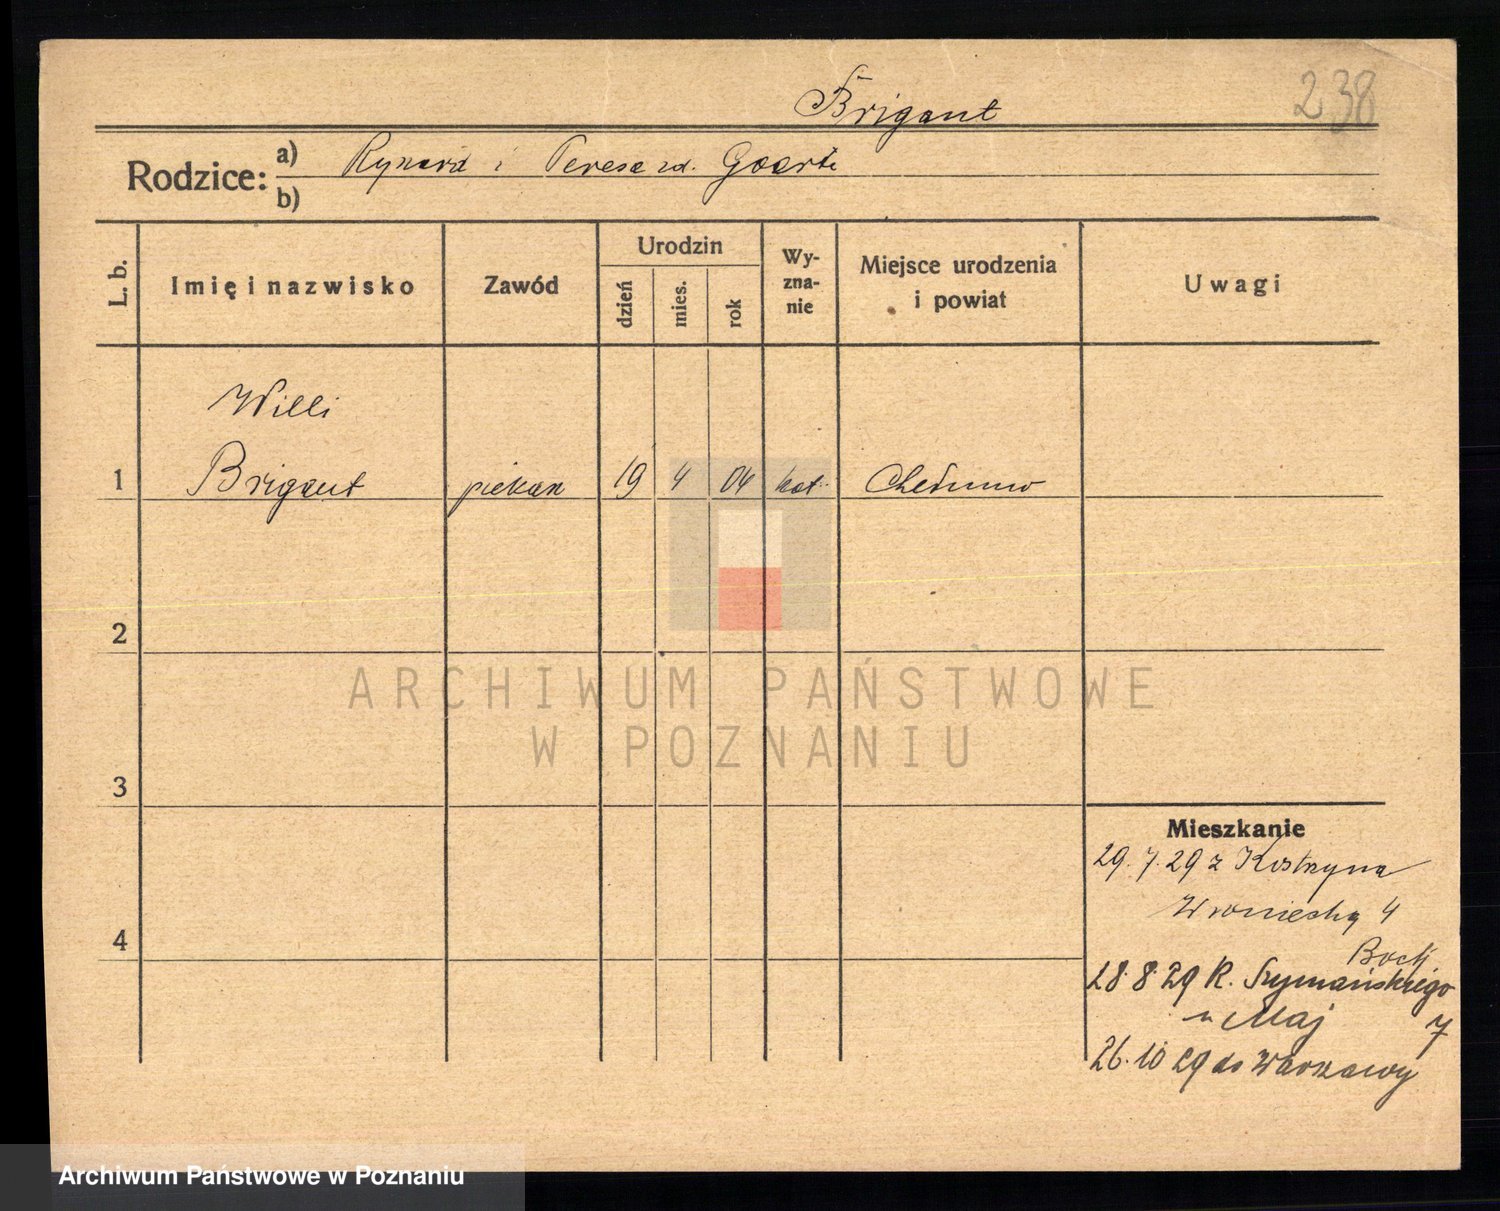 Brigant
238
Rodzice:
a) Rynard i Teresa zd.
b)
L. b.
Imię i nazwisko
Zawód
Urodzin
dzień
mies.
rok
Wy-
zna-
nie
Miejsce urodzenia
i powiat
Uwagi
Willi
1 Brigant piekarz 19 4 04 kat. Chełmno
2
3
4
Mieszkanie
29.7.29 z Kostrzyna
Wroniecka 4
28.8.29 R. Szymańskiego 7
u Maj
26.10 29 do Warszawy
ARCHIWUM PAŃSTWOWE
W POZNANIU
Archiwum Państwowe w Poznaniu